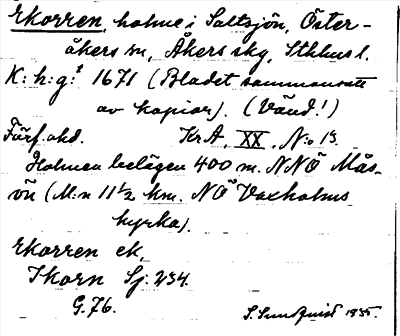 Ekorren, holme i Saltsjön, Öster-
åkers sn, Åkers skg, Sthlms l.
K: h: g:t 1671 (Bladet sammansatt
av kopior). (Vänd!)
Förf. okd. Kr A, XX, N:o 13.
Holmen belägen 400 m. NNÖ Mås-
ön (M:n 11 1/2 km. NÖ Vaxholms
kyrka).
Ekorren ek,
Ikorn Sj: 234.
G. 76.
S. Sundquist 1935.